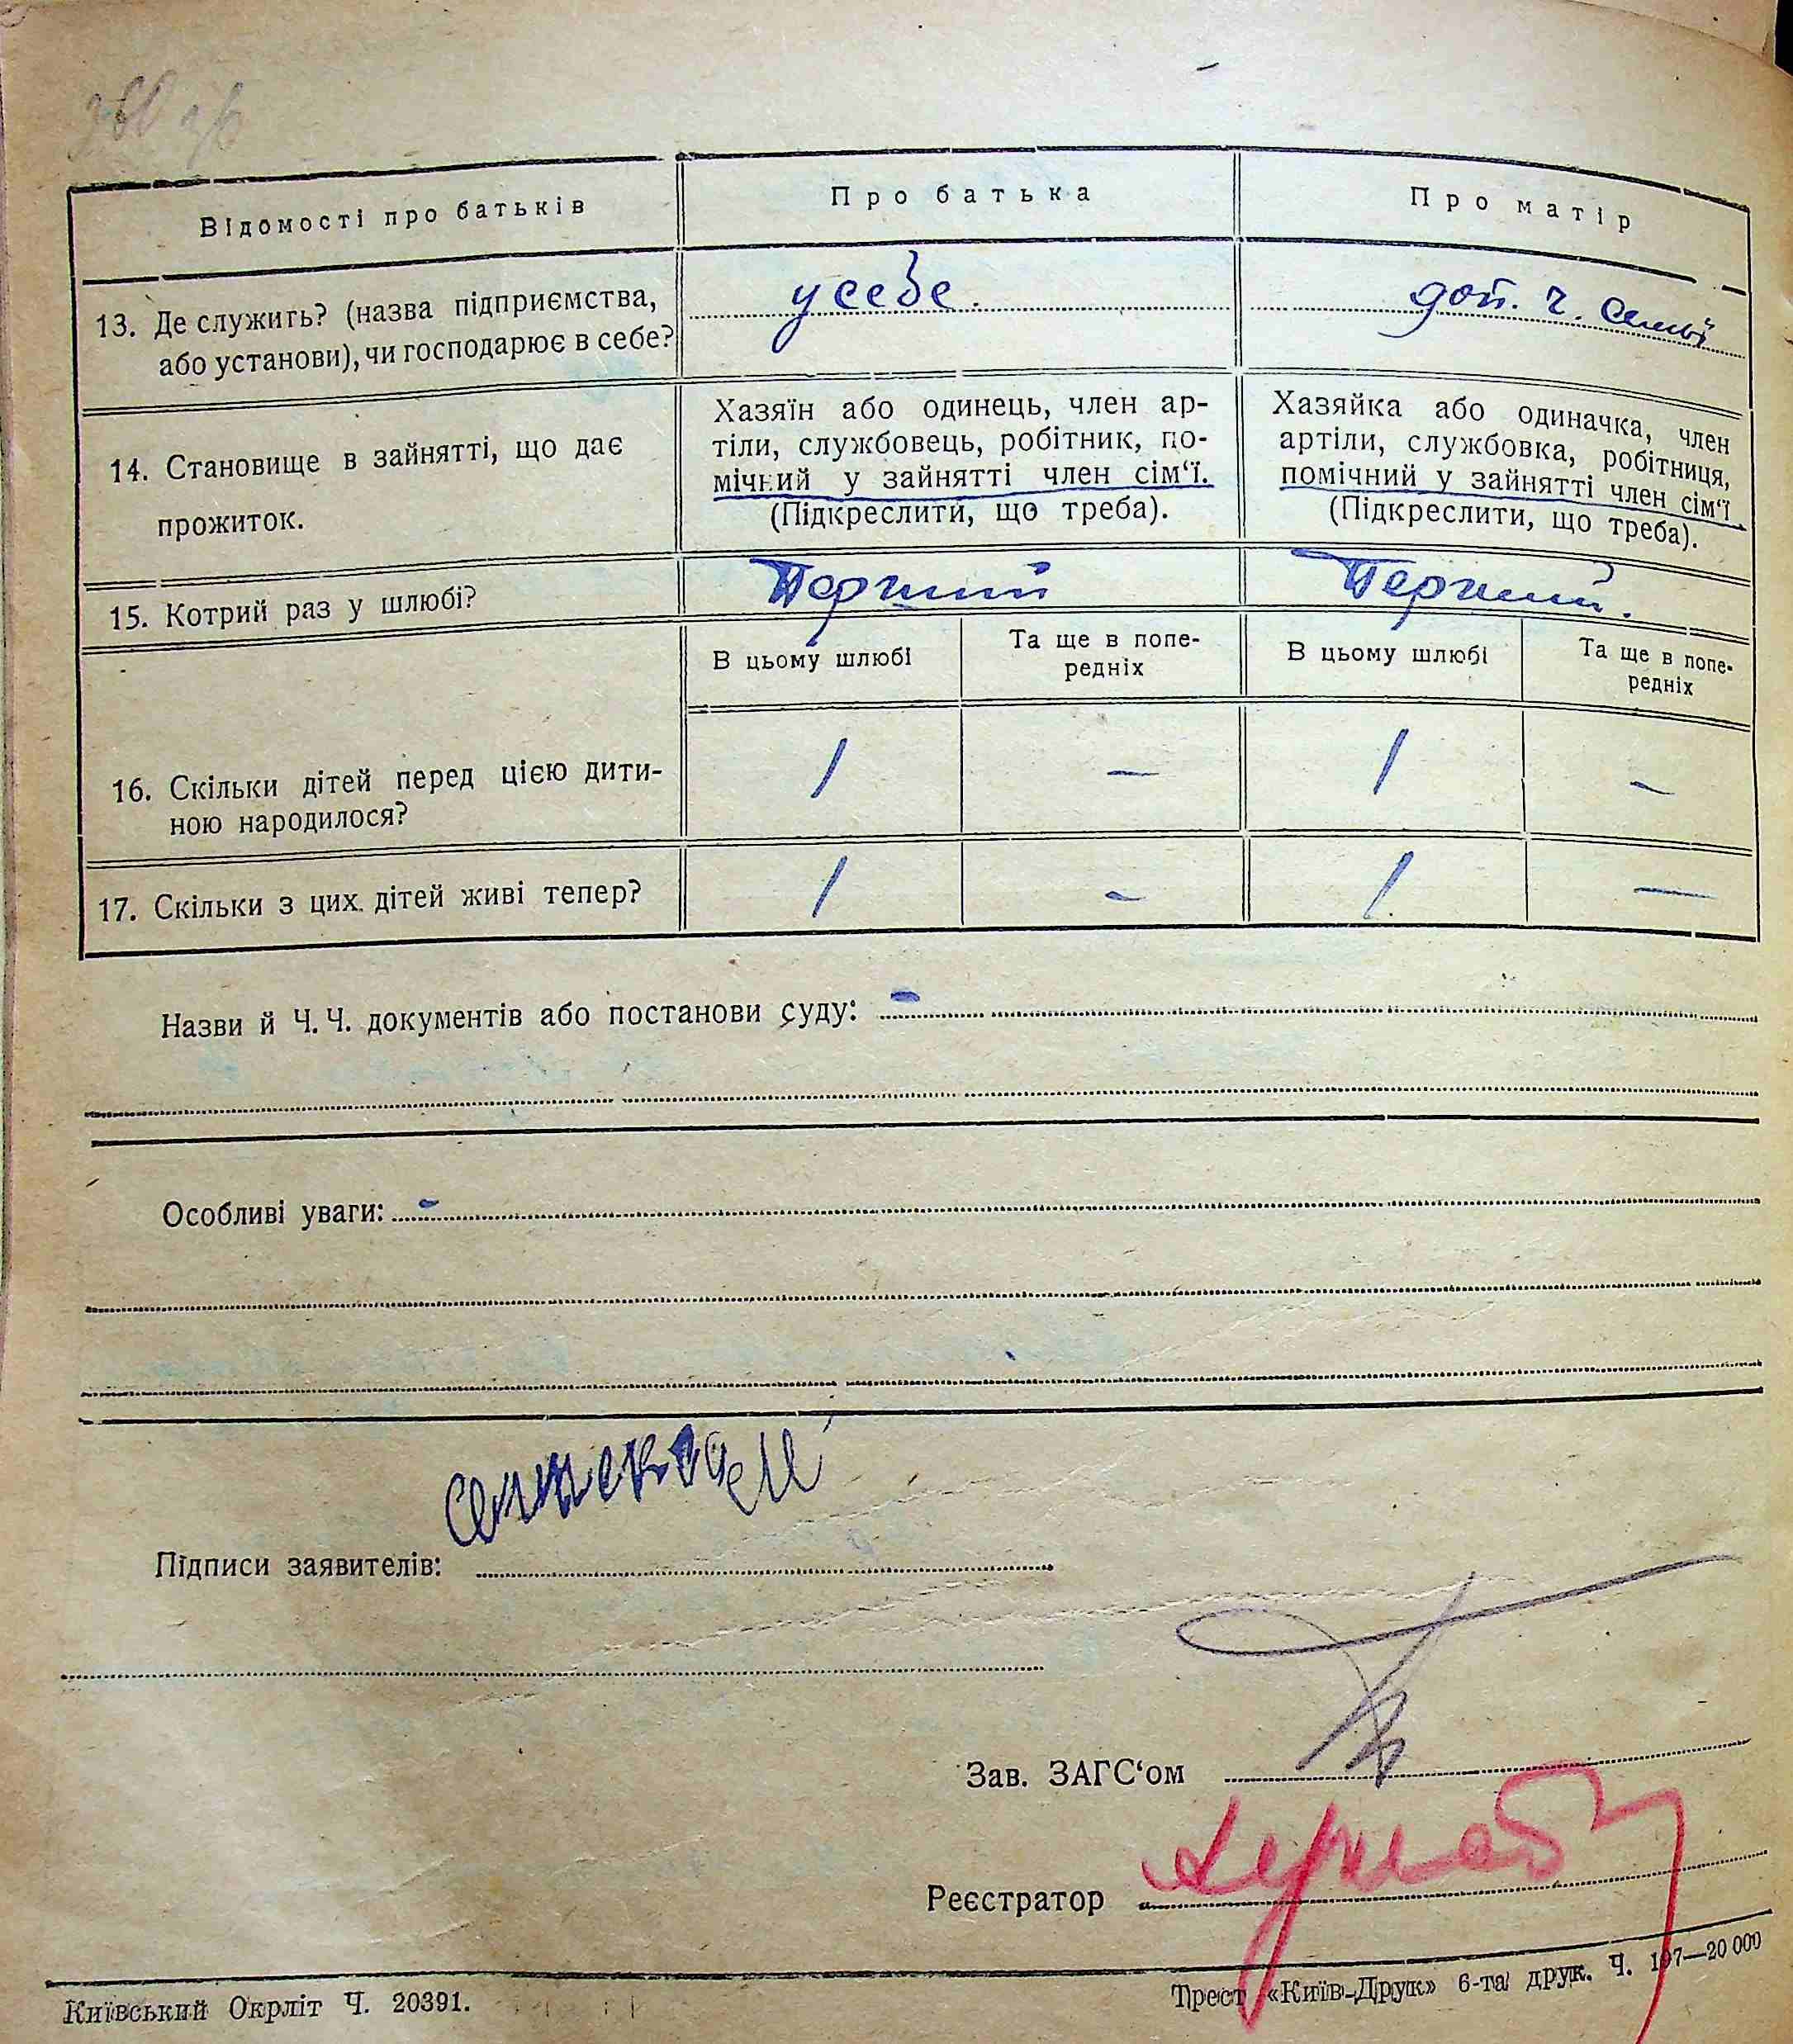 Відомості про батьків
Про батька
Про матір
13. Де служить? (назва підприємства,
або установи), чи господарює в себе?
у себе.
доп. ч. семьї
14. Становище в зайнятті, що дає
прожиток.
Хазяїн або одинець, член ар-
тіли, службовець, робітник, по-
мічний у зайнятті член сім‘ї.
(Підкреслити, що треба).
Хазяйка або одиначка, член
артіли, службовка, робітниця,
помічний у зайнятті член сім‘ї.
(Підкреслити, що треба).
15. Котрий раз у шлюбі?
Перший
Перший.
В цьому шлюбі
Та ще в попе-
редніх
В цьому шлюбі
Та ще в попе-
редніх
16. Скільки дітей перед цією дити-
ною народилося?
1 - 1 -
17. Скільки з цих дітей живі тепер?
1 - 1 -
Назви й Ч. Ч. документів або постанови суду: -
Особливі уваги: -
Підписи заявителів:
Зав. ЗАГС‘ом
Реєстратор
Київський Окрліт Ч. 20391.
Трест «Київ-Друк» 6-та друк. Ч. 197—20 000